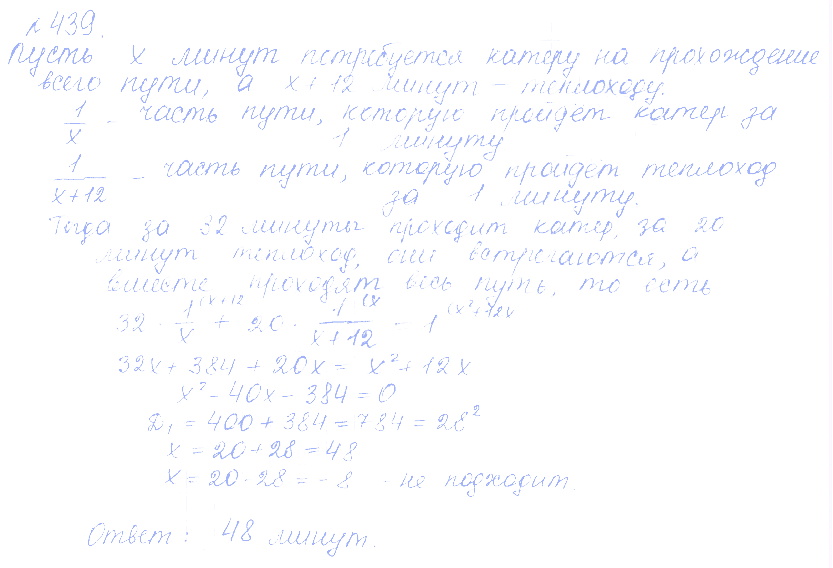 № 439.
Пусть x минут потребуется катеру на прохождение
всего пути, а x+12 минут – теплоходу.
1/x - часть пути, которую пройдет катер за
1 минуту
1/(x+12) - часть пути, которую пройдет теплоход
за 1 минуту.
Тогда за 32 минуты проходит катер, за 20
минут теплоход, они встречаются, а
вместе проходят весь путь, то есть
32 · 1/x (x+12 + 20 · 1/(x+12) (x = 1 (x²+12x
32x + 384 + 20x = x² + 12x
x² - 40x - 384 = 0
D₁ = 400 + 384 = 784 = 28²
x = 20 + 28 = 48
x = 20 - 28 = - 8 - не подходит.
Ответ: 48 минут.